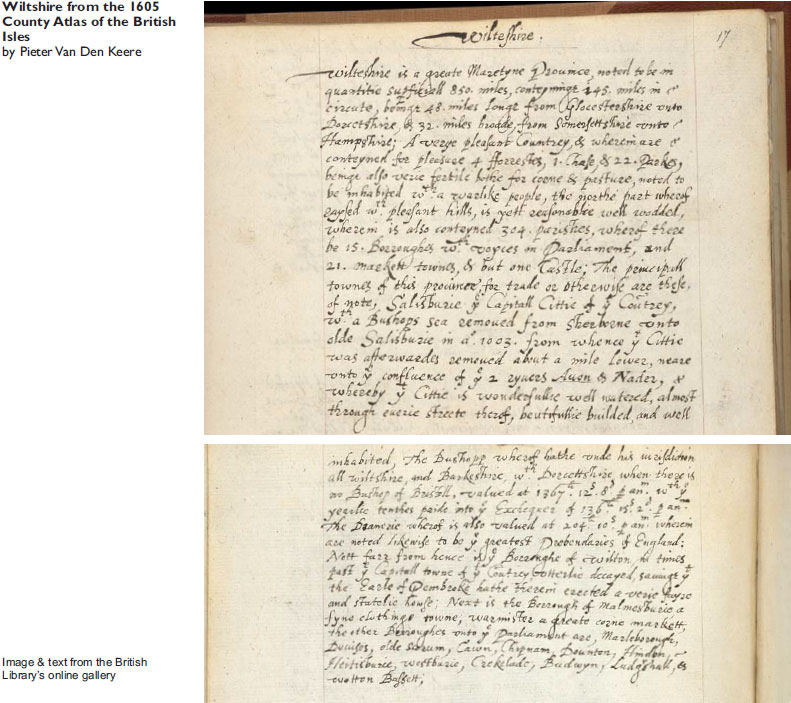 Wiltshire from the 1605
County Atlas of the British
Isles
by Pieter Van Den Keere
Wilteshire.
17
Wilteshire is a greate Maretyne Province, noted to be in
quantitie superficiall 850. miles, conteyninge 145. miles in
circute, beinge 48. miles longe from Glocestershire unto
Dorcetshire, & 32. miles brodde, from Somersettshire unto
Hampshire; A verye pleasant Countrey, & wherein are
conteyned for pleasure 4 fforrestes, 1. Chase, & 22. Parkes,
beinge also verie fertile bothe for corne & pasture, noted to
be inhabited wth a warlike people, the northe part wherof
raysed wth pleasant hills, is yett reasonable well wodded,
wherein is also conteyned 304. parishes, wherof there
be 15. Borroughes wth voyces in Parliament, and
21. markett townes, & but one Castle; The principall
townes of this province, for trade or otherwise are these,
of note, Salisburie ye Capitall Cittie of ye Coutrey,
wth a Bushops sea removed from Sherborne unto
olde Salisburie in ao. 1003. from whence ye Cittie
was afterwardes removed about a mile lower, neare
unto ye confluence of ye 2 ryvers Avon & Nader, &
whereby ye Cittie is wonderfullie well watered, almost
through everie streete therof, beutifullie builded, and well
inhabited, The Bushopp wherof hathe unde his iurisdiction
all wiltshire, and Barkeshire, wth Dorcettshire when there is
no Bushop of Bristoll. valued at 1367li. 12s. 8d p anm. wth ye
yearlie tenthes paide into ye Exchequer of 136li. 15s. 2d. p anm.
The Deanerie wherof is also valued at 204li. 10s. p anm. wherein
are noted likewise to be ye greatest Prebendaries of England;
Nott farr from hence is ye Borroughe of wilton, in times
past ye Capitall towne of ye Coutrey utterlie decayed, savinge yt
the Earle of Pembroke hathe therein erected a verie fayre
and statelie house; Next is the Borrough of Malmesburie a
fyne clothinge towne, warmister a greate corne markett,
the other Borroughes unto ye Parliament are, Marleborough,
Devises, olde Sarum, Cawn, Chipnam, Dounton, Hindon,
Heitisburie, westburie, Crekelade, Budwyn, Ludgshall, &
wotton Bassett;
Image & text from the British
Library's online gallery